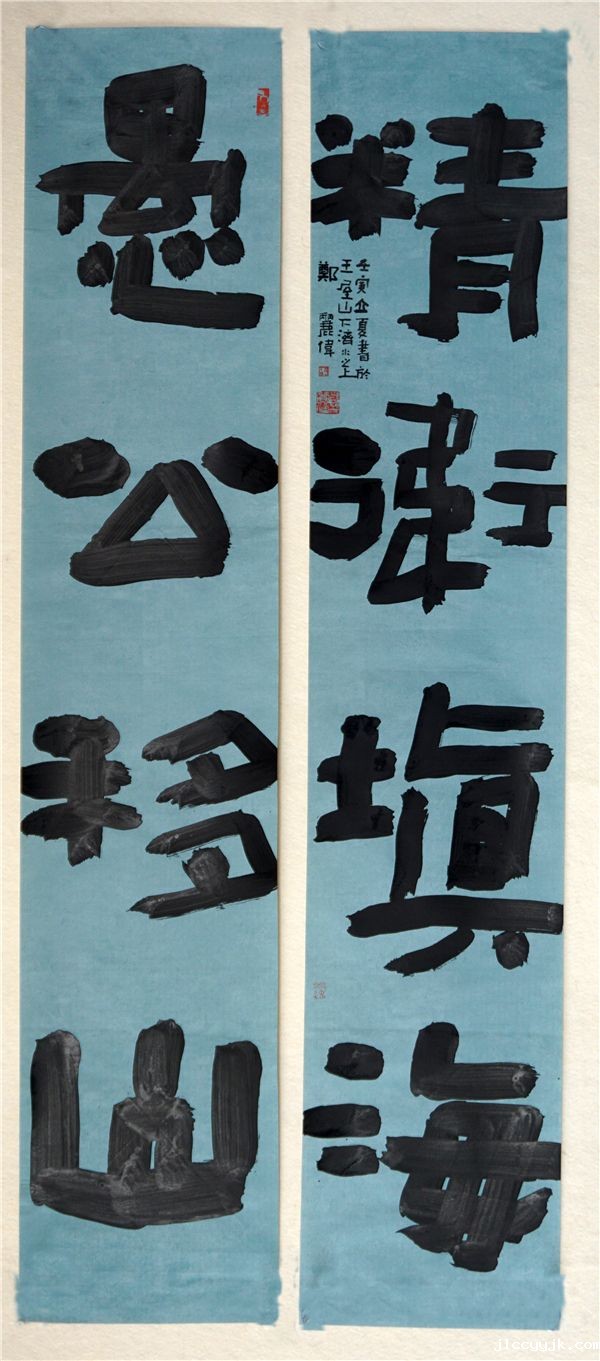 精衛填海
壬寅立夏書於
王屋山下濟水之上
鄭麗偉
愚公移山